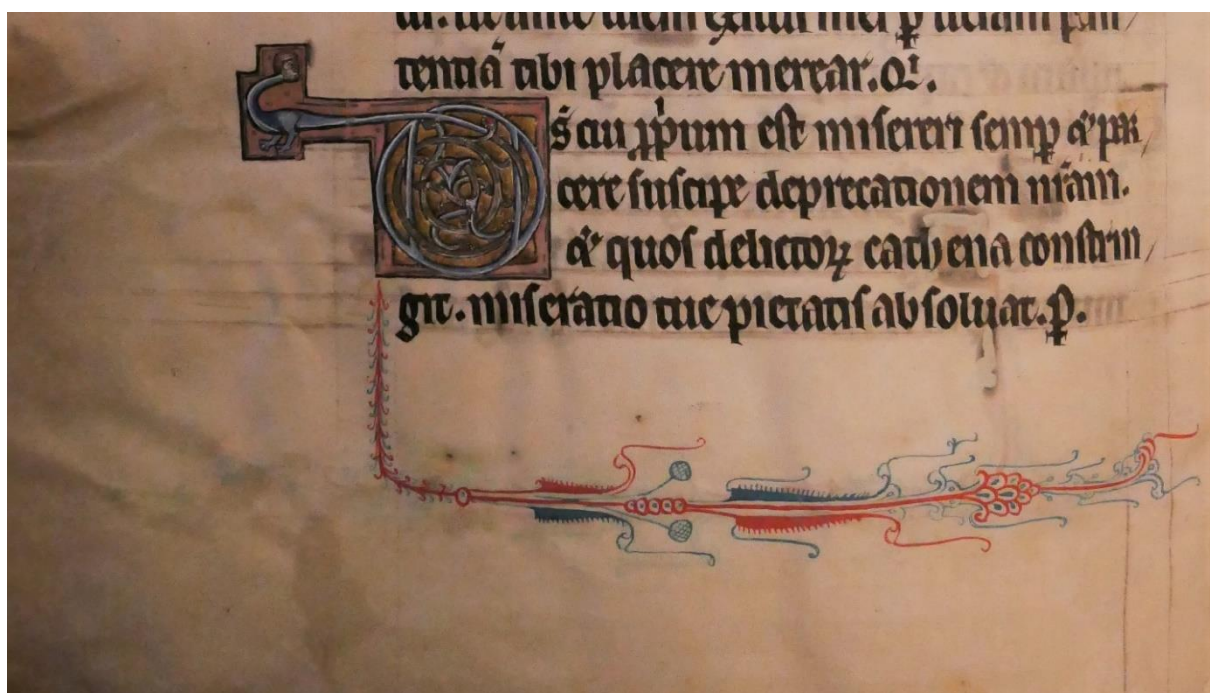 tentiā tibi placere merear. Qi.
Ds̄ cui ꝓpͥum est misereri semꝑ ⁊ par
cere suscipe deprecationem nr̄am.
⁊ quos delictoꝝ cathena constrin
git. miseratio tue pietatis absoluat. ꝑ.